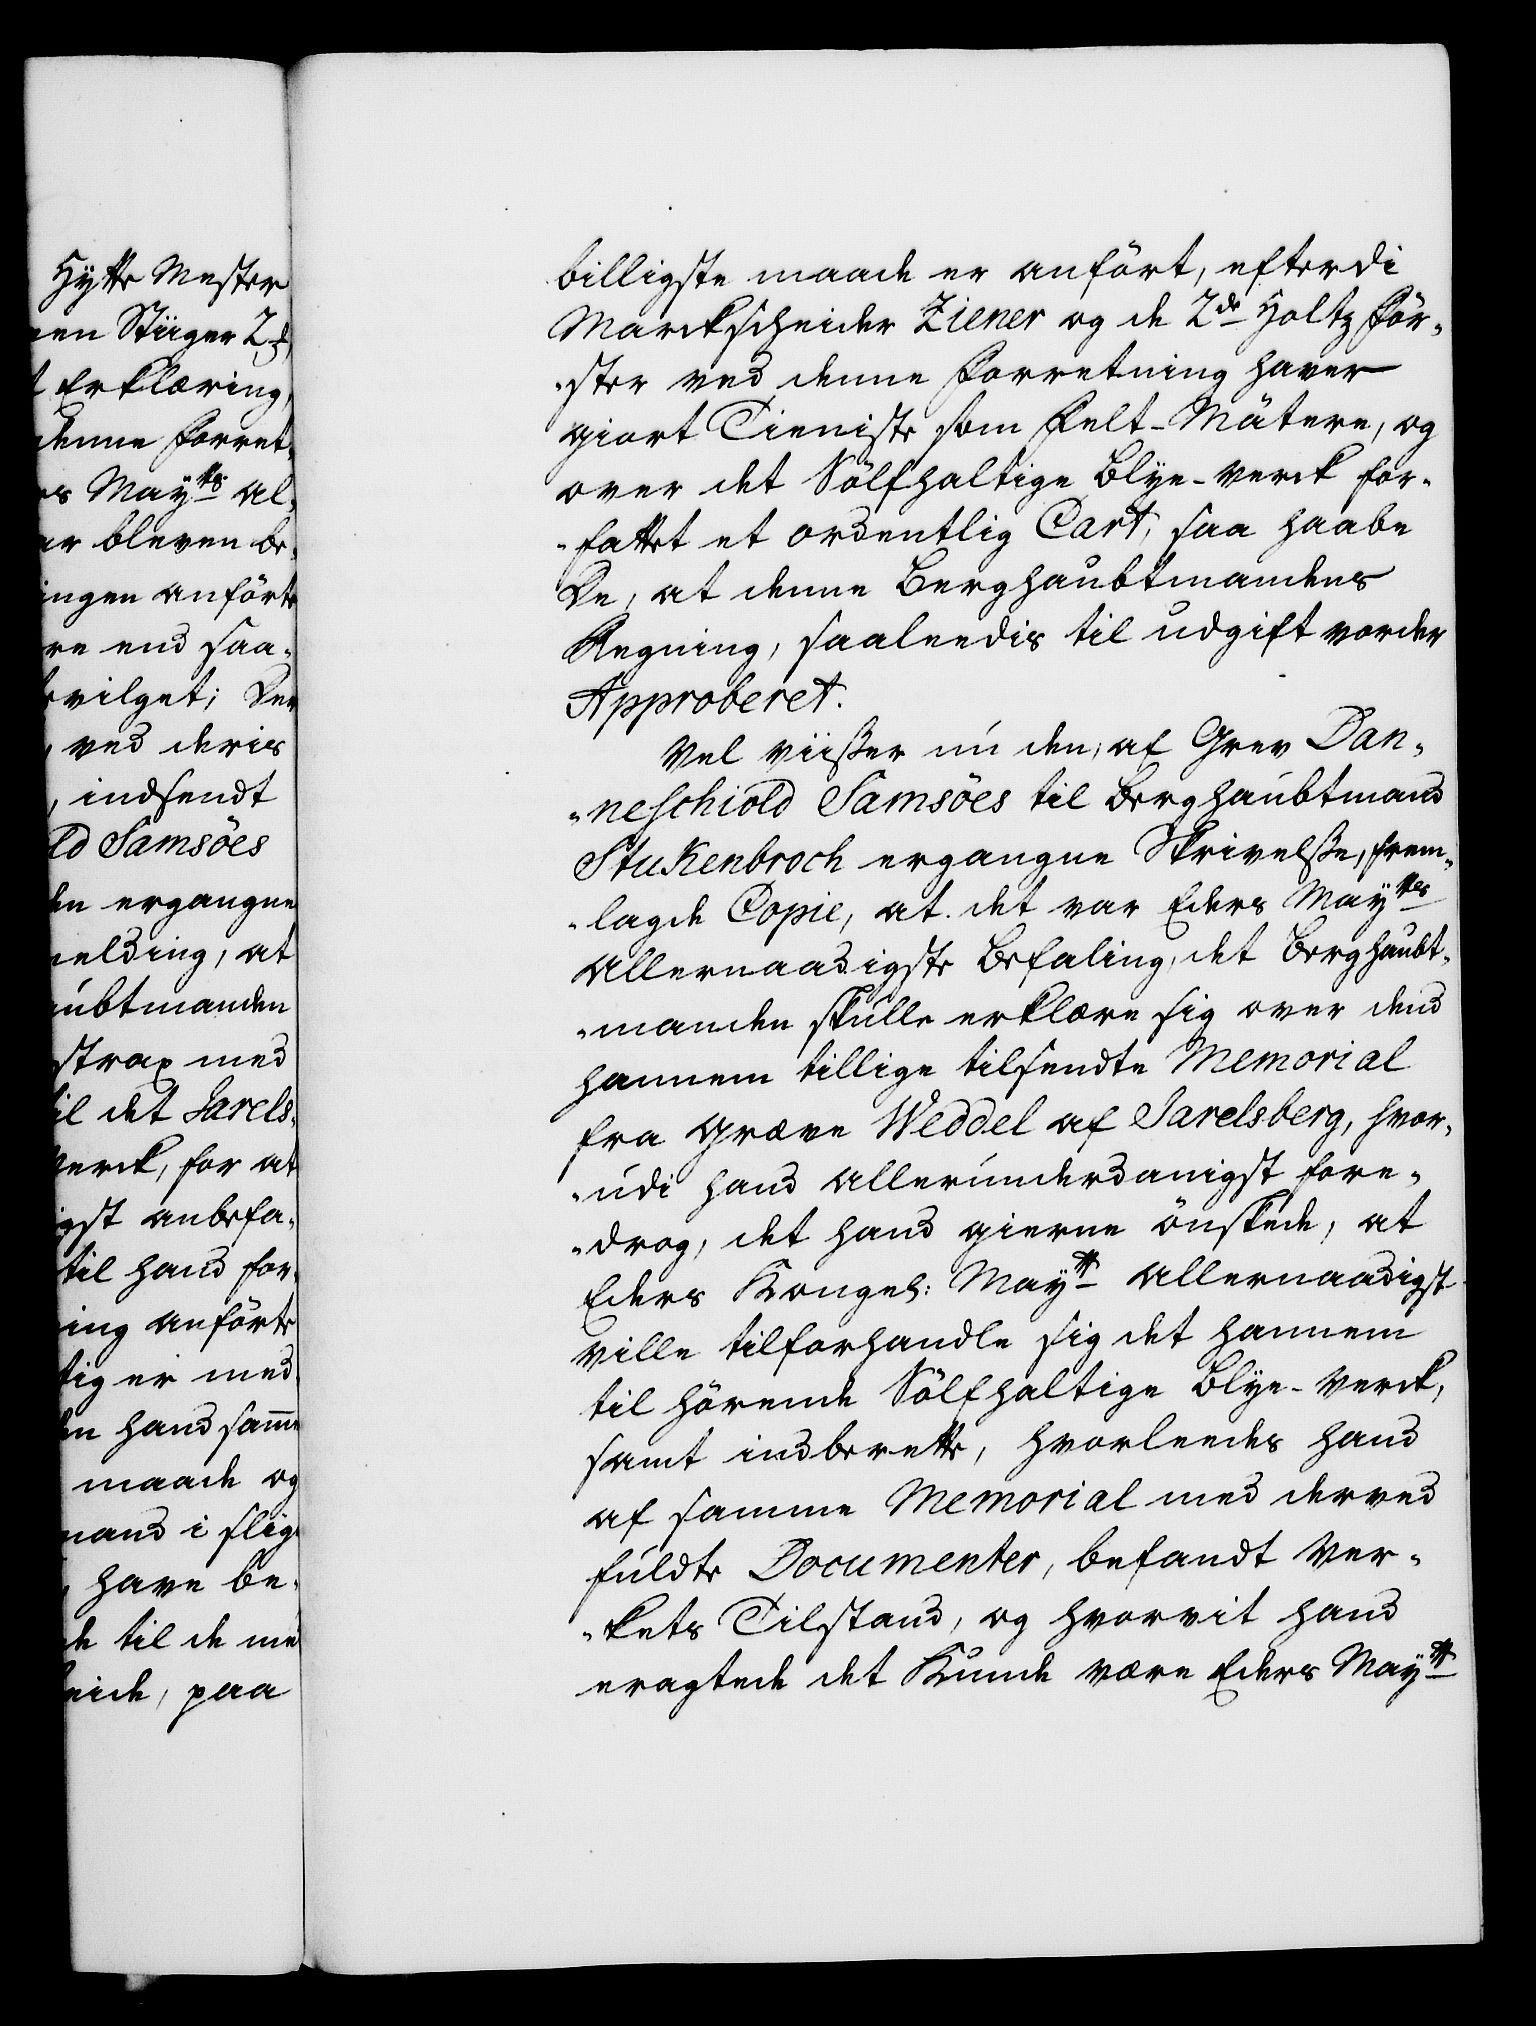 Hytte Mester
Stiiger 2 f
Erklæring,
denne Forret-
Mayts al-
bleven be-
anförte
end saa-
ved deris
, indsendt
Samsöes
ergangne
at
strax med
det Jarels-
for at
anbefa-
til hand for-
anförte
er med
hand samme
maade og
i slig
have be-
til de
, paa
billigste maade er anfört, efterdi
Marckscheider Ziener og de 2de Holtz För-
-ster ved denne Forretning haver
giort Tieniste som Felt-Mätere, og
over det Sölfhaltige Blye-Verck for-
-fattet et ordentlig Cart, saa haabe
De, at denne Berghaubtmandens
Regning, saaleedis til udgift vorder
Approberet.
Vel viißer nu den, af Grev Dan-
-neschiold Samsöes til Berghaubtmand
Stukenbroch ergangne Skrivelße, frem-
-lagde Copie, at det var Eders Mayttes
Allernaadigste Befaling, det Berghaubt-
-manden skulle erklære sig over dend
hannem tillige tilsendte Memorial
fra Græve Weddel af Jarelsberg, hvor-
-udi hand allerunderdanigst fore-
-drog, det hand gierne önskede, at
Eders Kongel: Maytt allernaadigst
ville tilforhandle sig det hannem
til hörende Sölfhaltige Blye-Verck,
samt indberette, hvorleedes hand
af samme Memorial med derved
fuldte Documenter, befandt Ver-
-kets Tilstand, og hvorvit hand
eragtede det Kunde være Eders Maytt